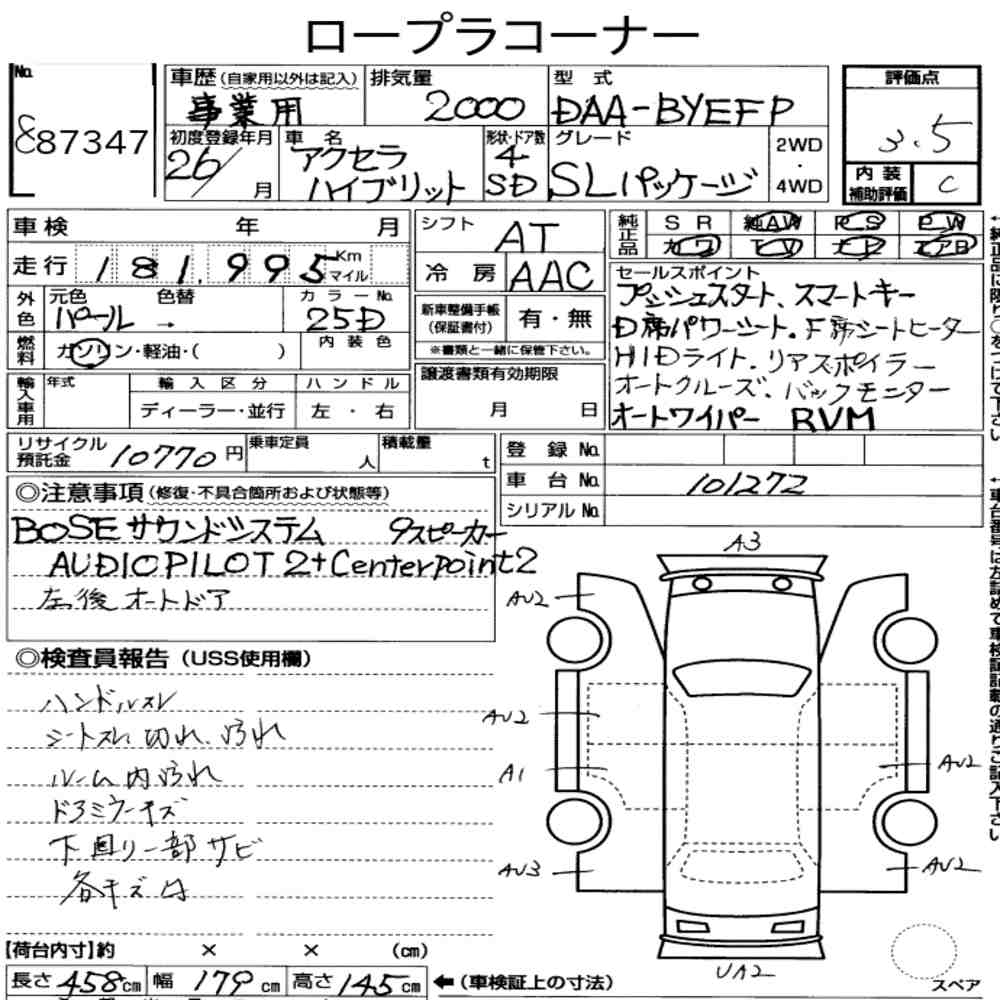 ロープラコーナー
No. 87347
車歴 (自家用以外は記入) 事業用
排気量 2000
型式 DAA-BYEFP
評価点 3.5
初度登録年月 26/ 月
車名 アクセラ ハイブリット
形状・ドア数 4 SD
グレード SLパッケージ
2WD ・ 4WD
内装補助評価 C
車検 年 月
シフト AT
純正品 SR 純AW PS PW
カワ TV ナビ エアB
走行 181,995 Km マイル
冷房 AAC
外色 元色 パール 色替 →
カラーNo. 25D
内装色
燃料 ガソリン・軽油・( )
新車整備手帳 (保証書付) 有・無
※書類と一緒に保管下さい。
セールスポイント
プッシュスタート、スマートキー
D席パワーシート、F席シートヒーター
HIDライト、リアスポイラー
オートクルーズ、バックモニター
オートワイパー RVM
輸入車用 年式 輸入区分 ハンドル
ディーラー・並行 左・右
譲渡書類有効期限
月 日
リサイクル預託金 10770円
乗車定員 人
積載量 t
登録No.
車台No. 101272
シリアルNo.
◎注意事項 (修復・不具合箇所および状態等)
BOSEサウンドシステム 9スピーカー
AUDIOPILOT2+Centerpoint2
左後オートドア
◎検査員報告 (USS使用欄)
ハンドルスレ
シートスレ 切れ、汚れ
ルーム内汚れ
ドアミラーキズ
下回り一部サビ
各キズ有
A3
AU2
AU2
A1
AU2
AU3
AU2
UA2
スペア
【荷台内寸】約 × × (cm)
長さ 458cm 幅 179cm 高さ 145cm ←(車検証上の寸法)
←純正品に限り○をつけて下さい
←車台番号は左詰めで車検証記載の通りご記入下さい